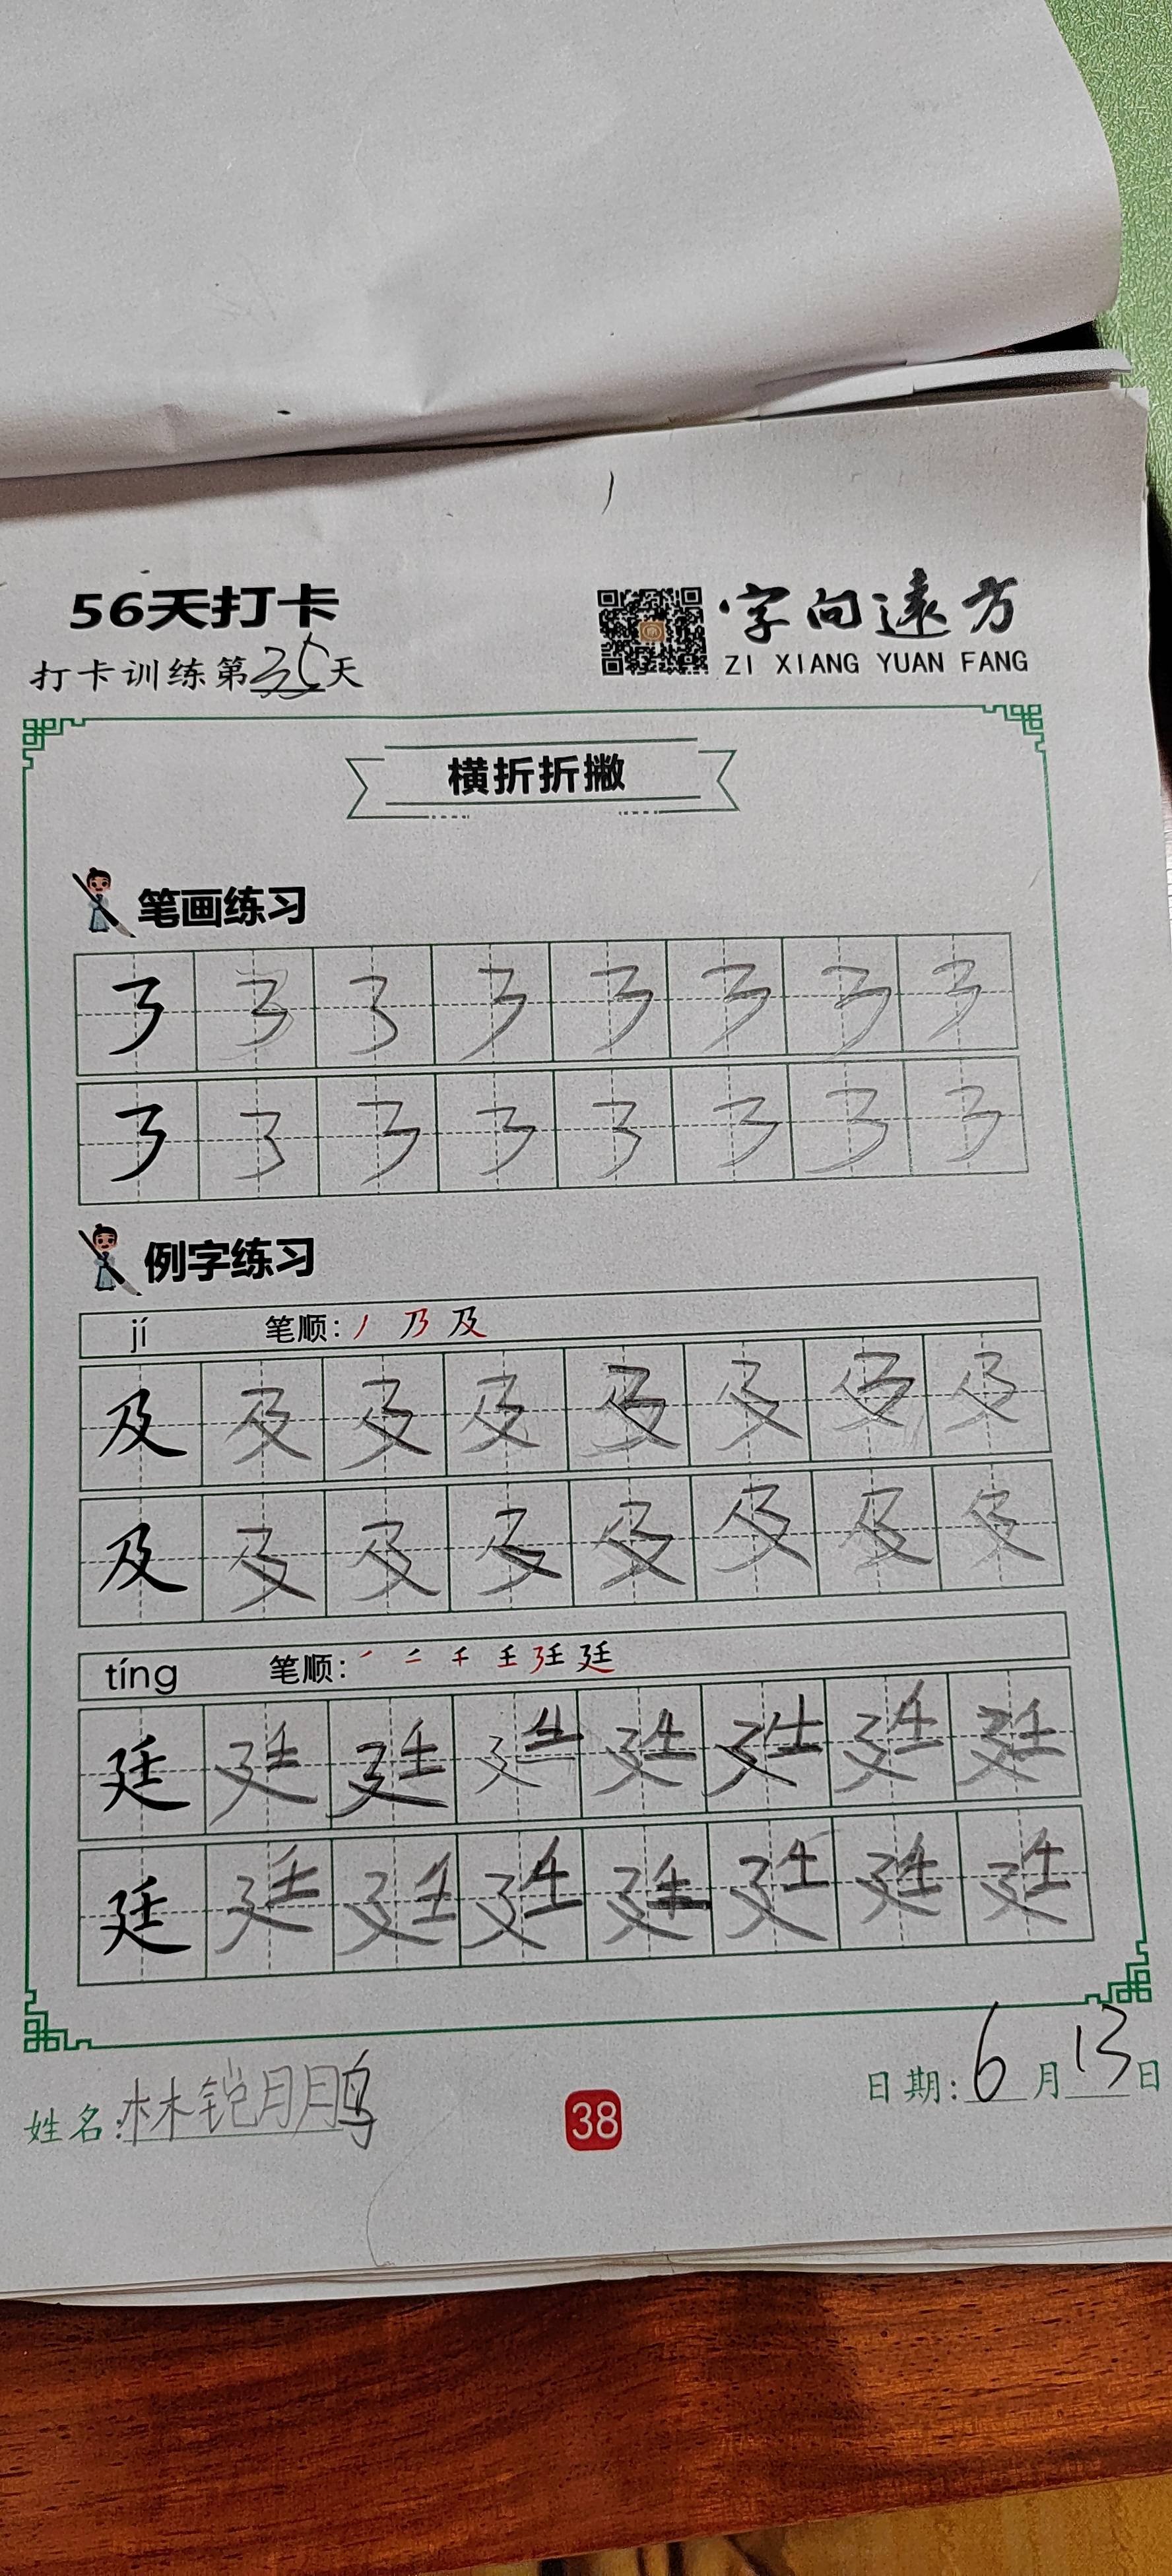 56天打卡
打卡训练第35天
字向遠方
ZI XIANG YUAN FANG
横折折撇
笔画练习
例字练习
jí 笔顺: 丿 乃 及
及 及 及 及 及 及 及 及
及 及 及 及 及 及 及 及
tíng 笔顺: ㇒ 二 千 壬 廷 廷
廷 廷 廷 廷 廷 廷 廷 廷
廷 廷 廷 廷 廷 廷 廷 廷
姓名:林铠朋鸟
38
日期: 6月13日